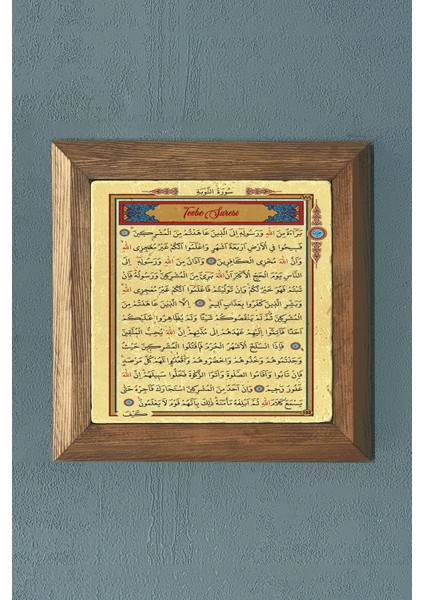 سُورَةُ التَّوْبَةِ
Tevbe Suresi
بَرَٓاءَةٌ مِنَ اللّٰهِ وَرَسُولِه۪ٓ اِلَى الَّذ۪ينَ عَاهَدْتُمْ مِنَ الْمُشْرِك۪ينَ
فَس۪يحُوا فِي الْاَرْضِ اَرْبَعَةَ اَشْهُرٍ وَاعْلَمُٓوا اَنَّكُمْ غَيْرُ مُعْجِزِي اللّٰهِ
وَاَنَّ اللّٰهَ مُخْزِي الْكَافِر۪ينَ وَاَذَانٌ مِنَ اللّٰهِ وَرَسُولِه۪ٓ اِلَى
النَّاسِ يَوْمَ الْحَجِّ الْاَكْبَرِ اَنَّ اللّٰهَ بَر۪ٓيءٌ مِنَ الْمُشْرِك۪ينَ وَرَسُولُهُ فَاِنْ
تُبْتُمْ فَهُوَ خَيْرٌ لَكُمْ وَاِنْ تَوَلَّيْتُمْ فَاعْلَمُٓوا اَنَّكُمْ غَيْرُ مُعْجِزِي اللّٰهِ
وَبَشِّرِ الَّذ۪ينَ كَفَرُوا بِعَذَابٍ اَل۪يمٍ اِلَّا الَّذ۪ينَ عَاهَدْتُمْ مِنَ
الْمُشْرِك۪ينَ ثُمَّ لَمْ يَنْقُصُوكُمْ شَيْـًٔا وَلَمْ يُظَاهِرُوا عَلَيْكُمْ
اَحَدًا فَاَتِمُّٓوا اِلَيْهِمْ عَهْدَهُمْ اِلٰى مُدَّتِهِمْ اِنَّ اللّٰهَ يُحِبُّ الْمُتَّق۪ينَ
فَاِذَا انْسَلَخَ الْاَشْهُرُ الْحُرُمُ فَاقْتُلُوا الْمُشْرِك۪ينَ حَيْثُ
وَجَدْتُمُوهُمْ وَخُذُوهُمْ وَاحْصُرُوهُمْ وَاقْعُدُوا لَهُمْ كُلَّ مَرْصَدٍ
فَاِنْ تَابُوا وَاَقَامُوا الصَّلٰوةَ وَاٰتَوُا الزَّكٰوةَ فَخَلُّوا سَب۪يلَهُمْ اِنَّ اللّٰهَ
غَفُورٌ رَح۪يمٌ وَاِنْ اَحَدٌ مِنَ الْمُشْرِك۪ينَ اسْتَجَارَكَ فَاَجِرْهُ حَتّٰى
يَسْمَعَ كَلَامَ اللّٰهِ ثُمَّ اَبْلِغْهُ مَأْمَنَهُ ذٰلِكَ بِاَنَّهُمْ قَوْمٌ لَا يَعْلَمُونَ
كَيْفَ